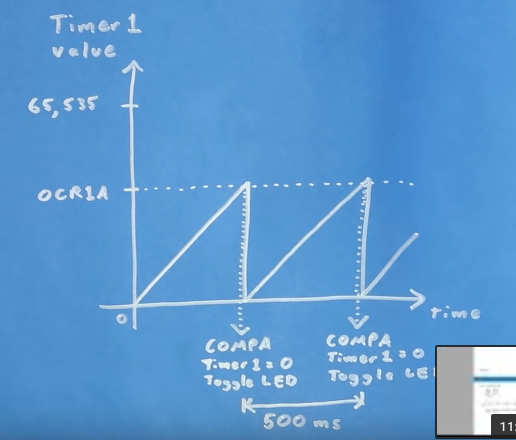 Timer 1
value
65,535
OCR1A
0
Time
COMPA
Timer 1 = 0
Toggle LED
COMPA
Timer 1 = 0
Toggle LE
500 ms
11: